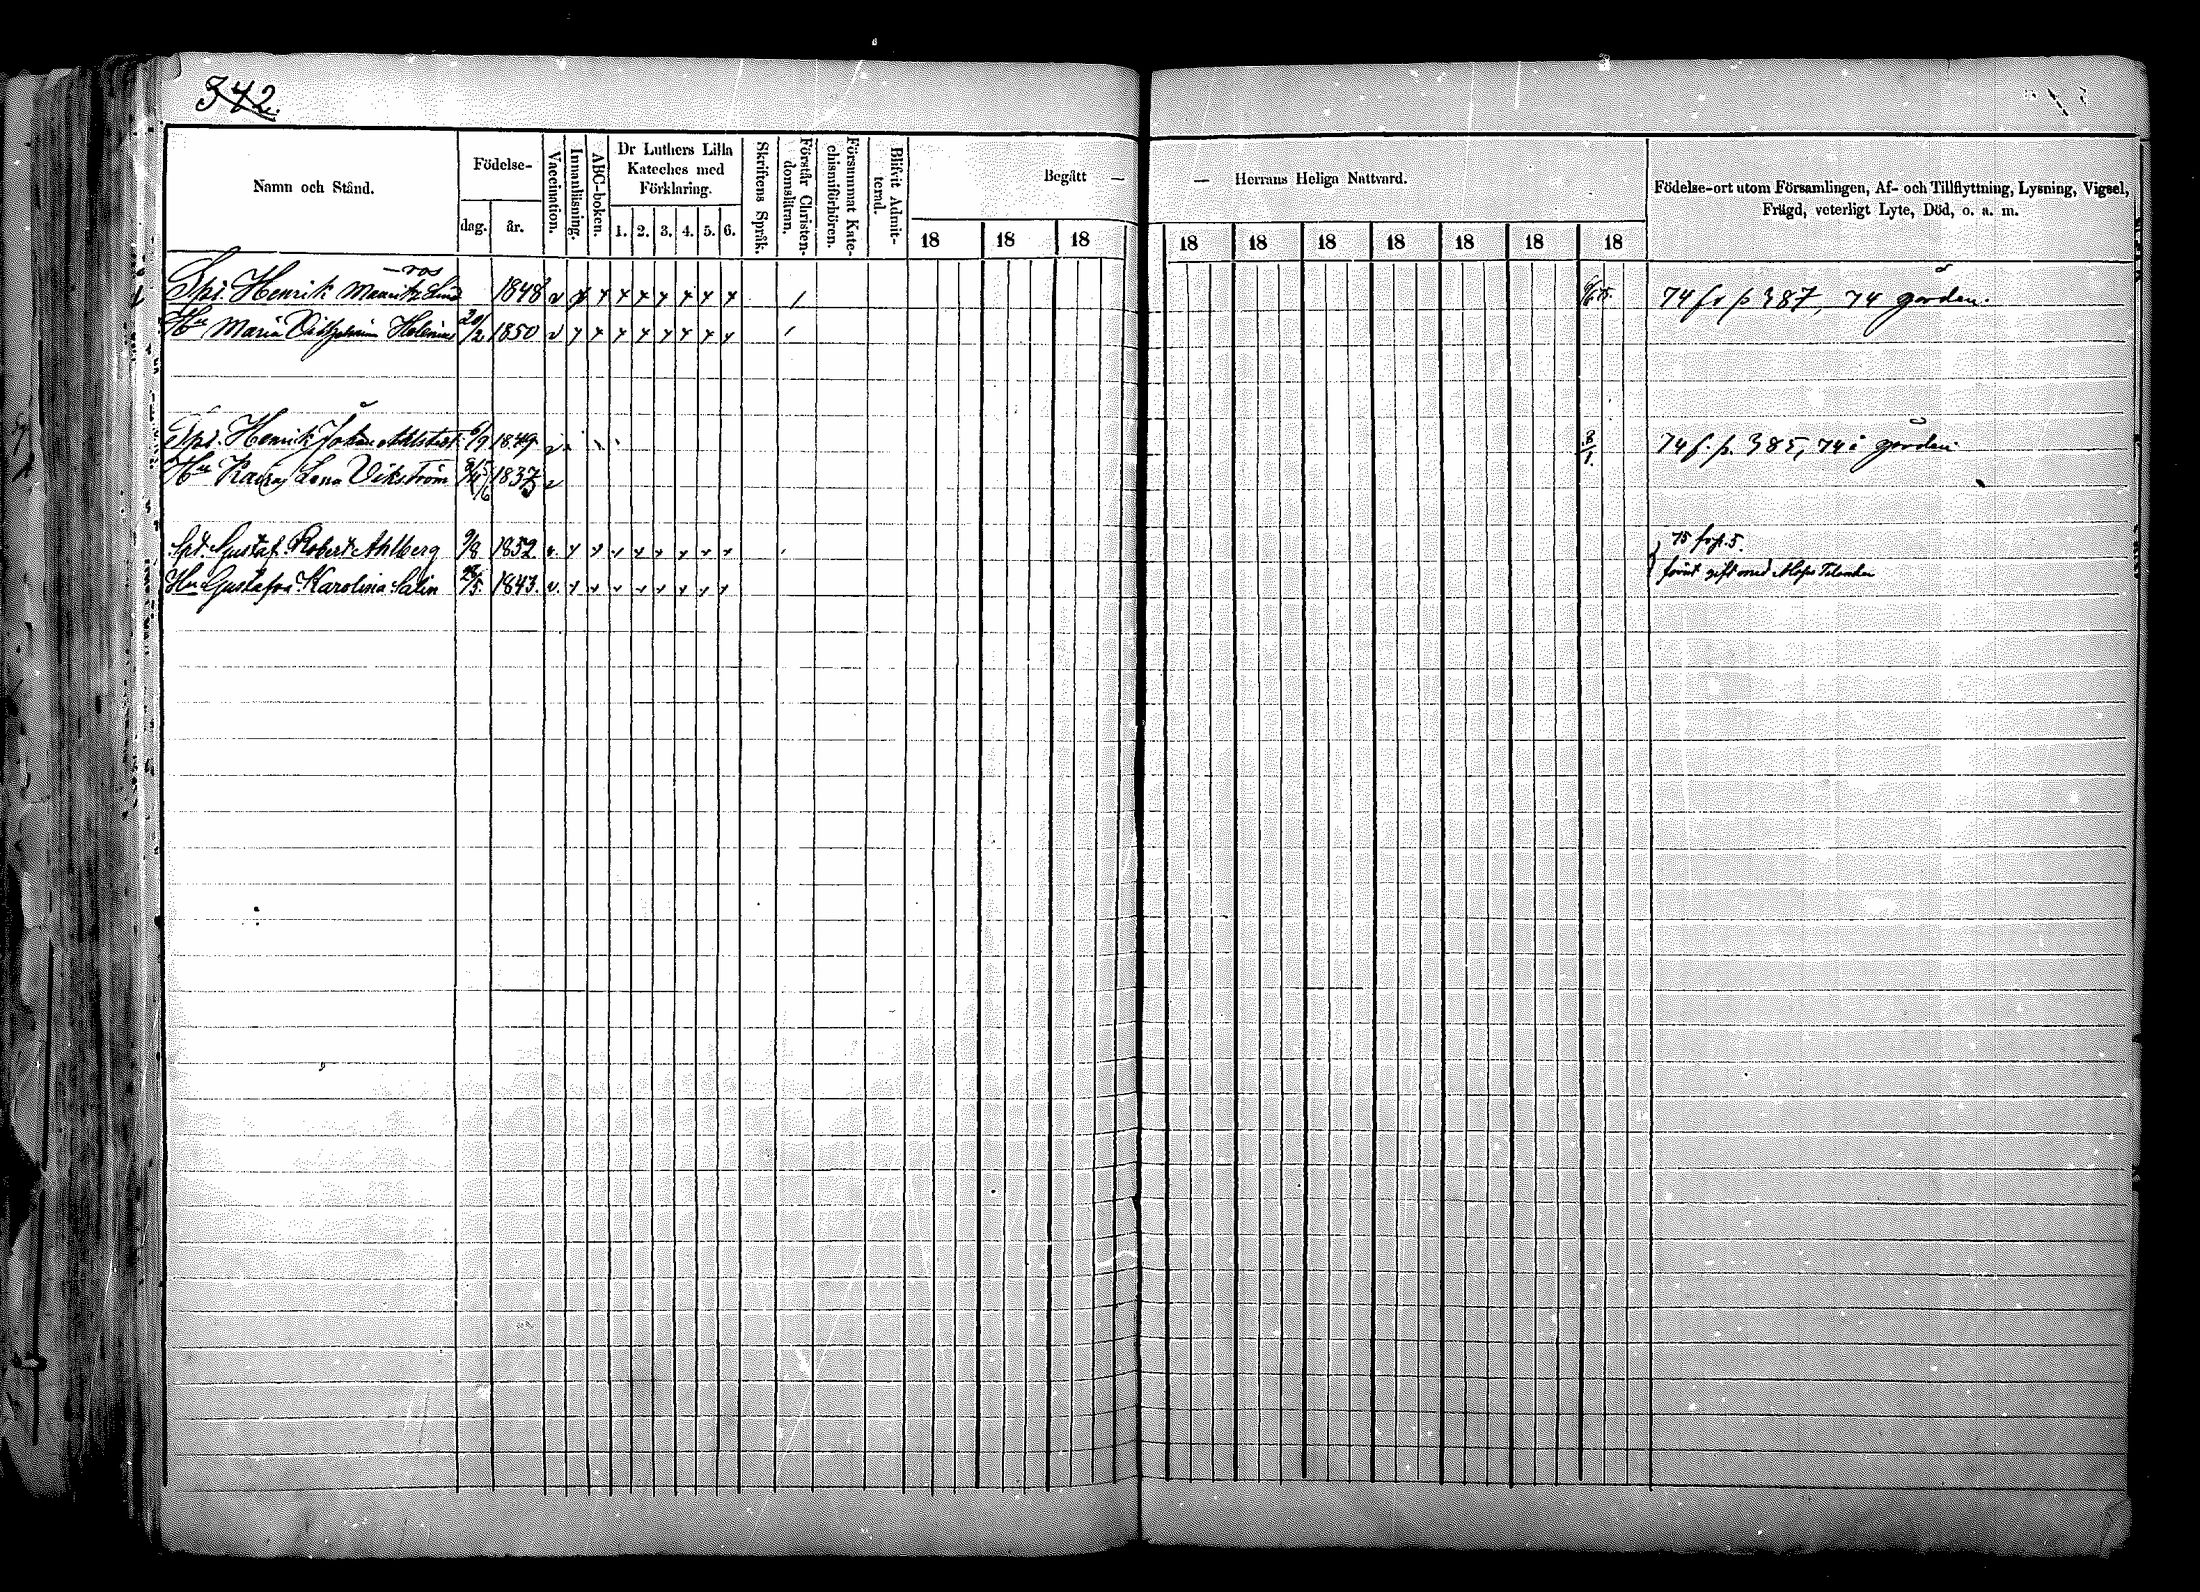 342.
Namn och Stånd.
Födelse-
dag.
år.
Vaccination.
Innanläsning.
ABC-boken.
Dr Luthers Lilla
Kateches med
Förklaring.
1. 2. 3. 4. 5. 6.
Skriftens Språk.
Förstår Christen-
domsläran.
Försummat Kate-
chismiförhören.
Blifvit Admit-
terad.
Begått —
18 18 18
— Herrans Heliga Nattvard.
18 18 18 18 18 18 18
Födelse-ort utom Församlingen, Af- och Tillflyttning, Lysning, Vigsel,
Frägd, veterligt Lyte, Död, o. a. m.
-ros
Henrik Mauritz Lind 1848 74 fr p 387, 74 gården.
Hu Maria Vilhelmina Helenius 20/2 1850
Henrik Johan Ahlstedt 1849 74 f. p. 385, 74 i gården
Hu Lena Vikström 1837
Gustaf Robert Ahlberg 9/8 1852 75 frp. 5.
Hu Gustafva Karolina Salin 1843. förut gift med